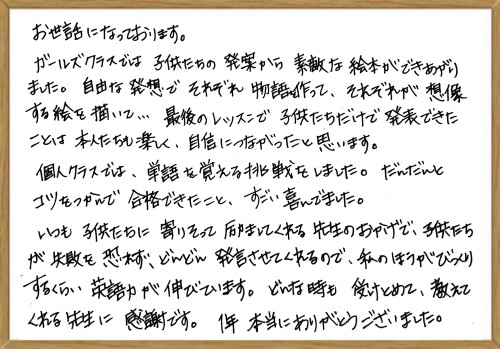 お世話になっております。
ガールズクラスでは 子供たちの 発案から 素敵な 絵本ができあがり
ました。 自由な 発想で それぞれ 物語を作って、 それぞれが 想像
する絵を 描いて… 最後の レッスンで 子供たちだけで 発表できた
ことは 本人たちも 楽しく、 自信につながったと 思います。
個人クラスでは、 単語を 覚える 挑戦を しました。 だんだんと
コツをつかんで 合格できたこと、 すごい 喜んでました。
いつも 子供たちに 寄りそって 励ましてくれる 先生のおかげで、子供たち
が 失敗を 恐れず、どんどん 発言させてくれるので、私の ほうがびっくり
するくらい 英語力が 伸びています。 どんな時も 受けとめて、教えて
くれる 先生に 感謝です。 1年 本当にありがとうございました。